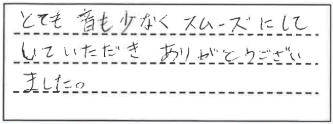 とても 音も少なく スムーズにして
していただき ありがとうござい
ました。